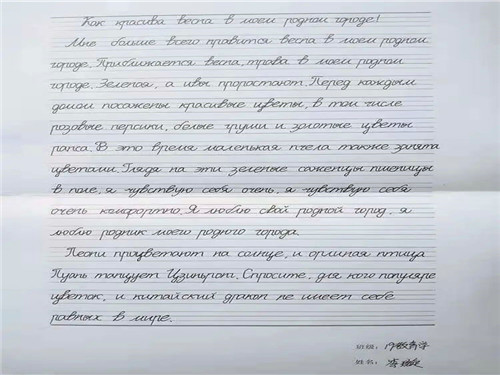 Как красива весна в моем родном городе!
Мне больше всего нравится весна в моем родном
городе. Приближается весна, трава в моем родном
городе. Зеленая, а ивы прорастают. Перед каждым
домом посажены красивые цветы, в том числе
розовые персики, белые груши и золотые цветы
рапса. В это время маленькая пчела также занята
цветами. Глядя на эти зеленые саженцы пшеницы
в поле, я чувствую себя очень, я чувствую себя
очень комфортно. Я люблю свой родной город, я
люблю родник моего родного города.
Пеони процветают на солнце, и орлиная птица
Луань танцует Цзиньлонг. Спросите, для кого популяре
цветок, и китайский дракон не имеет себе
равных в мире.
班级:
姓名: